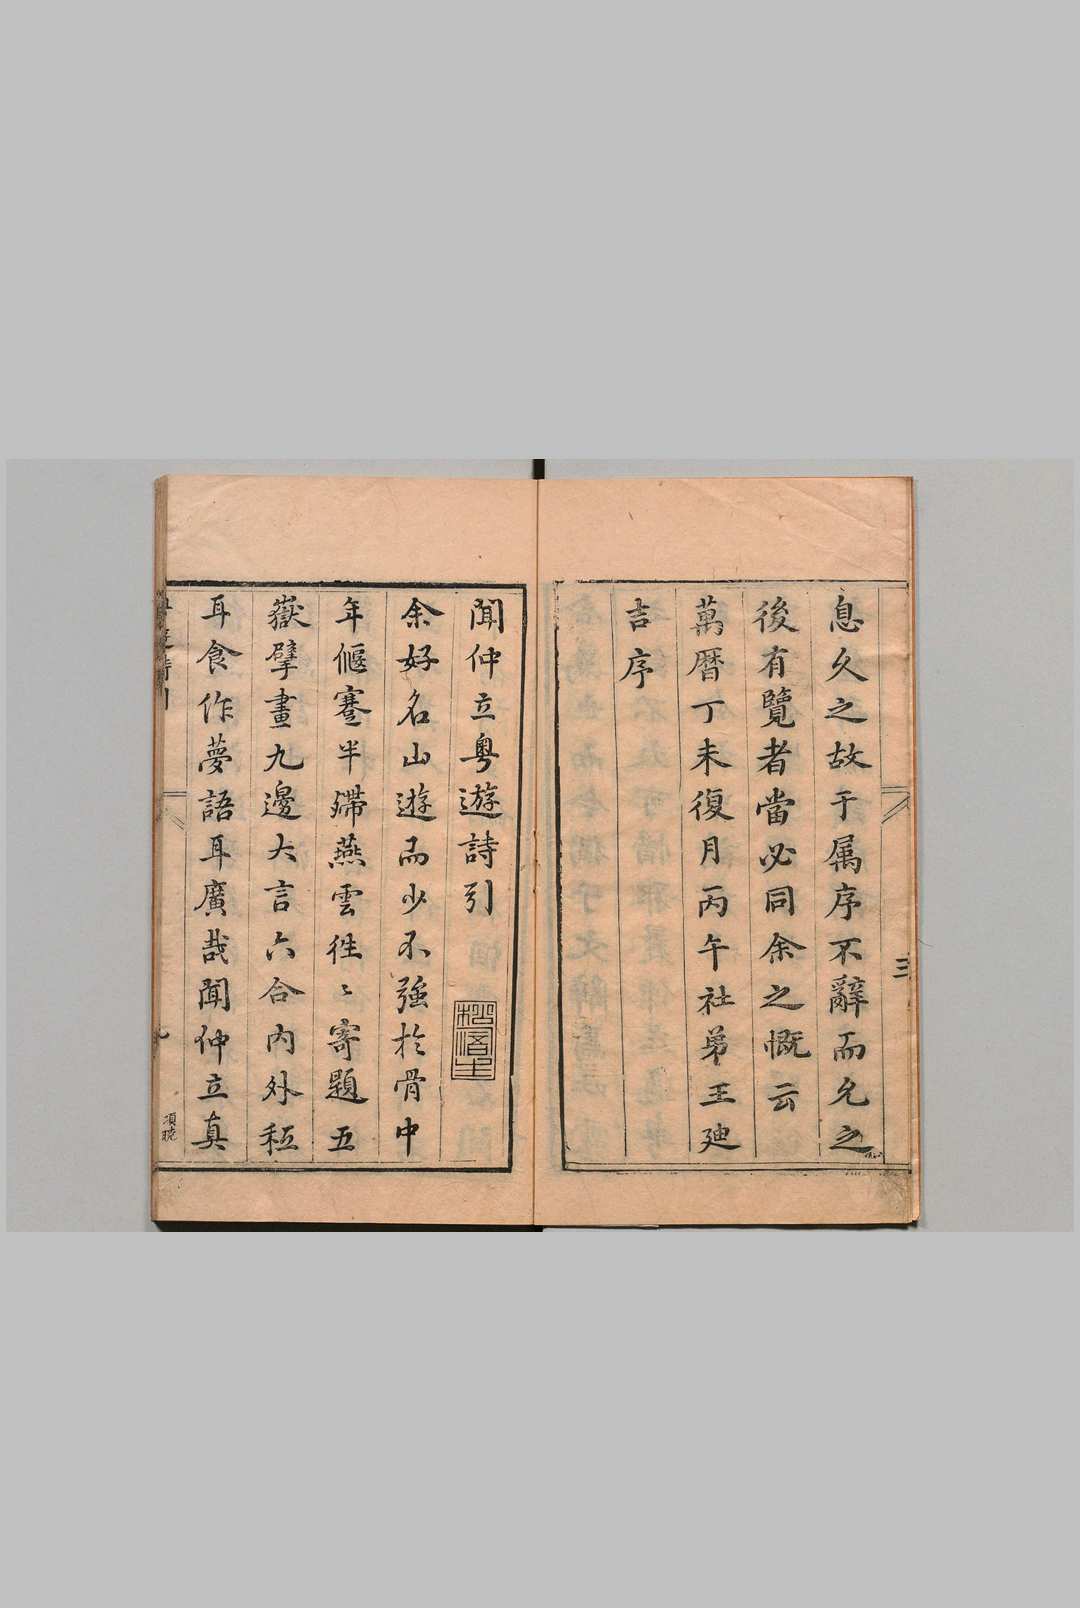 息久之故于属序不辭而允之
後有覽者當必同余之慨云
萬曆丁未復月丙午社弟王𢌞
吉序
三
聞仲立粵遊詩引
余好名山遊而少不強於骨中
年偃蹇半㱯燕雲徃〻寄題五
嶽擘畫九邊大言六合內外秖
耳食作夢語耳廣哉聞仲立真